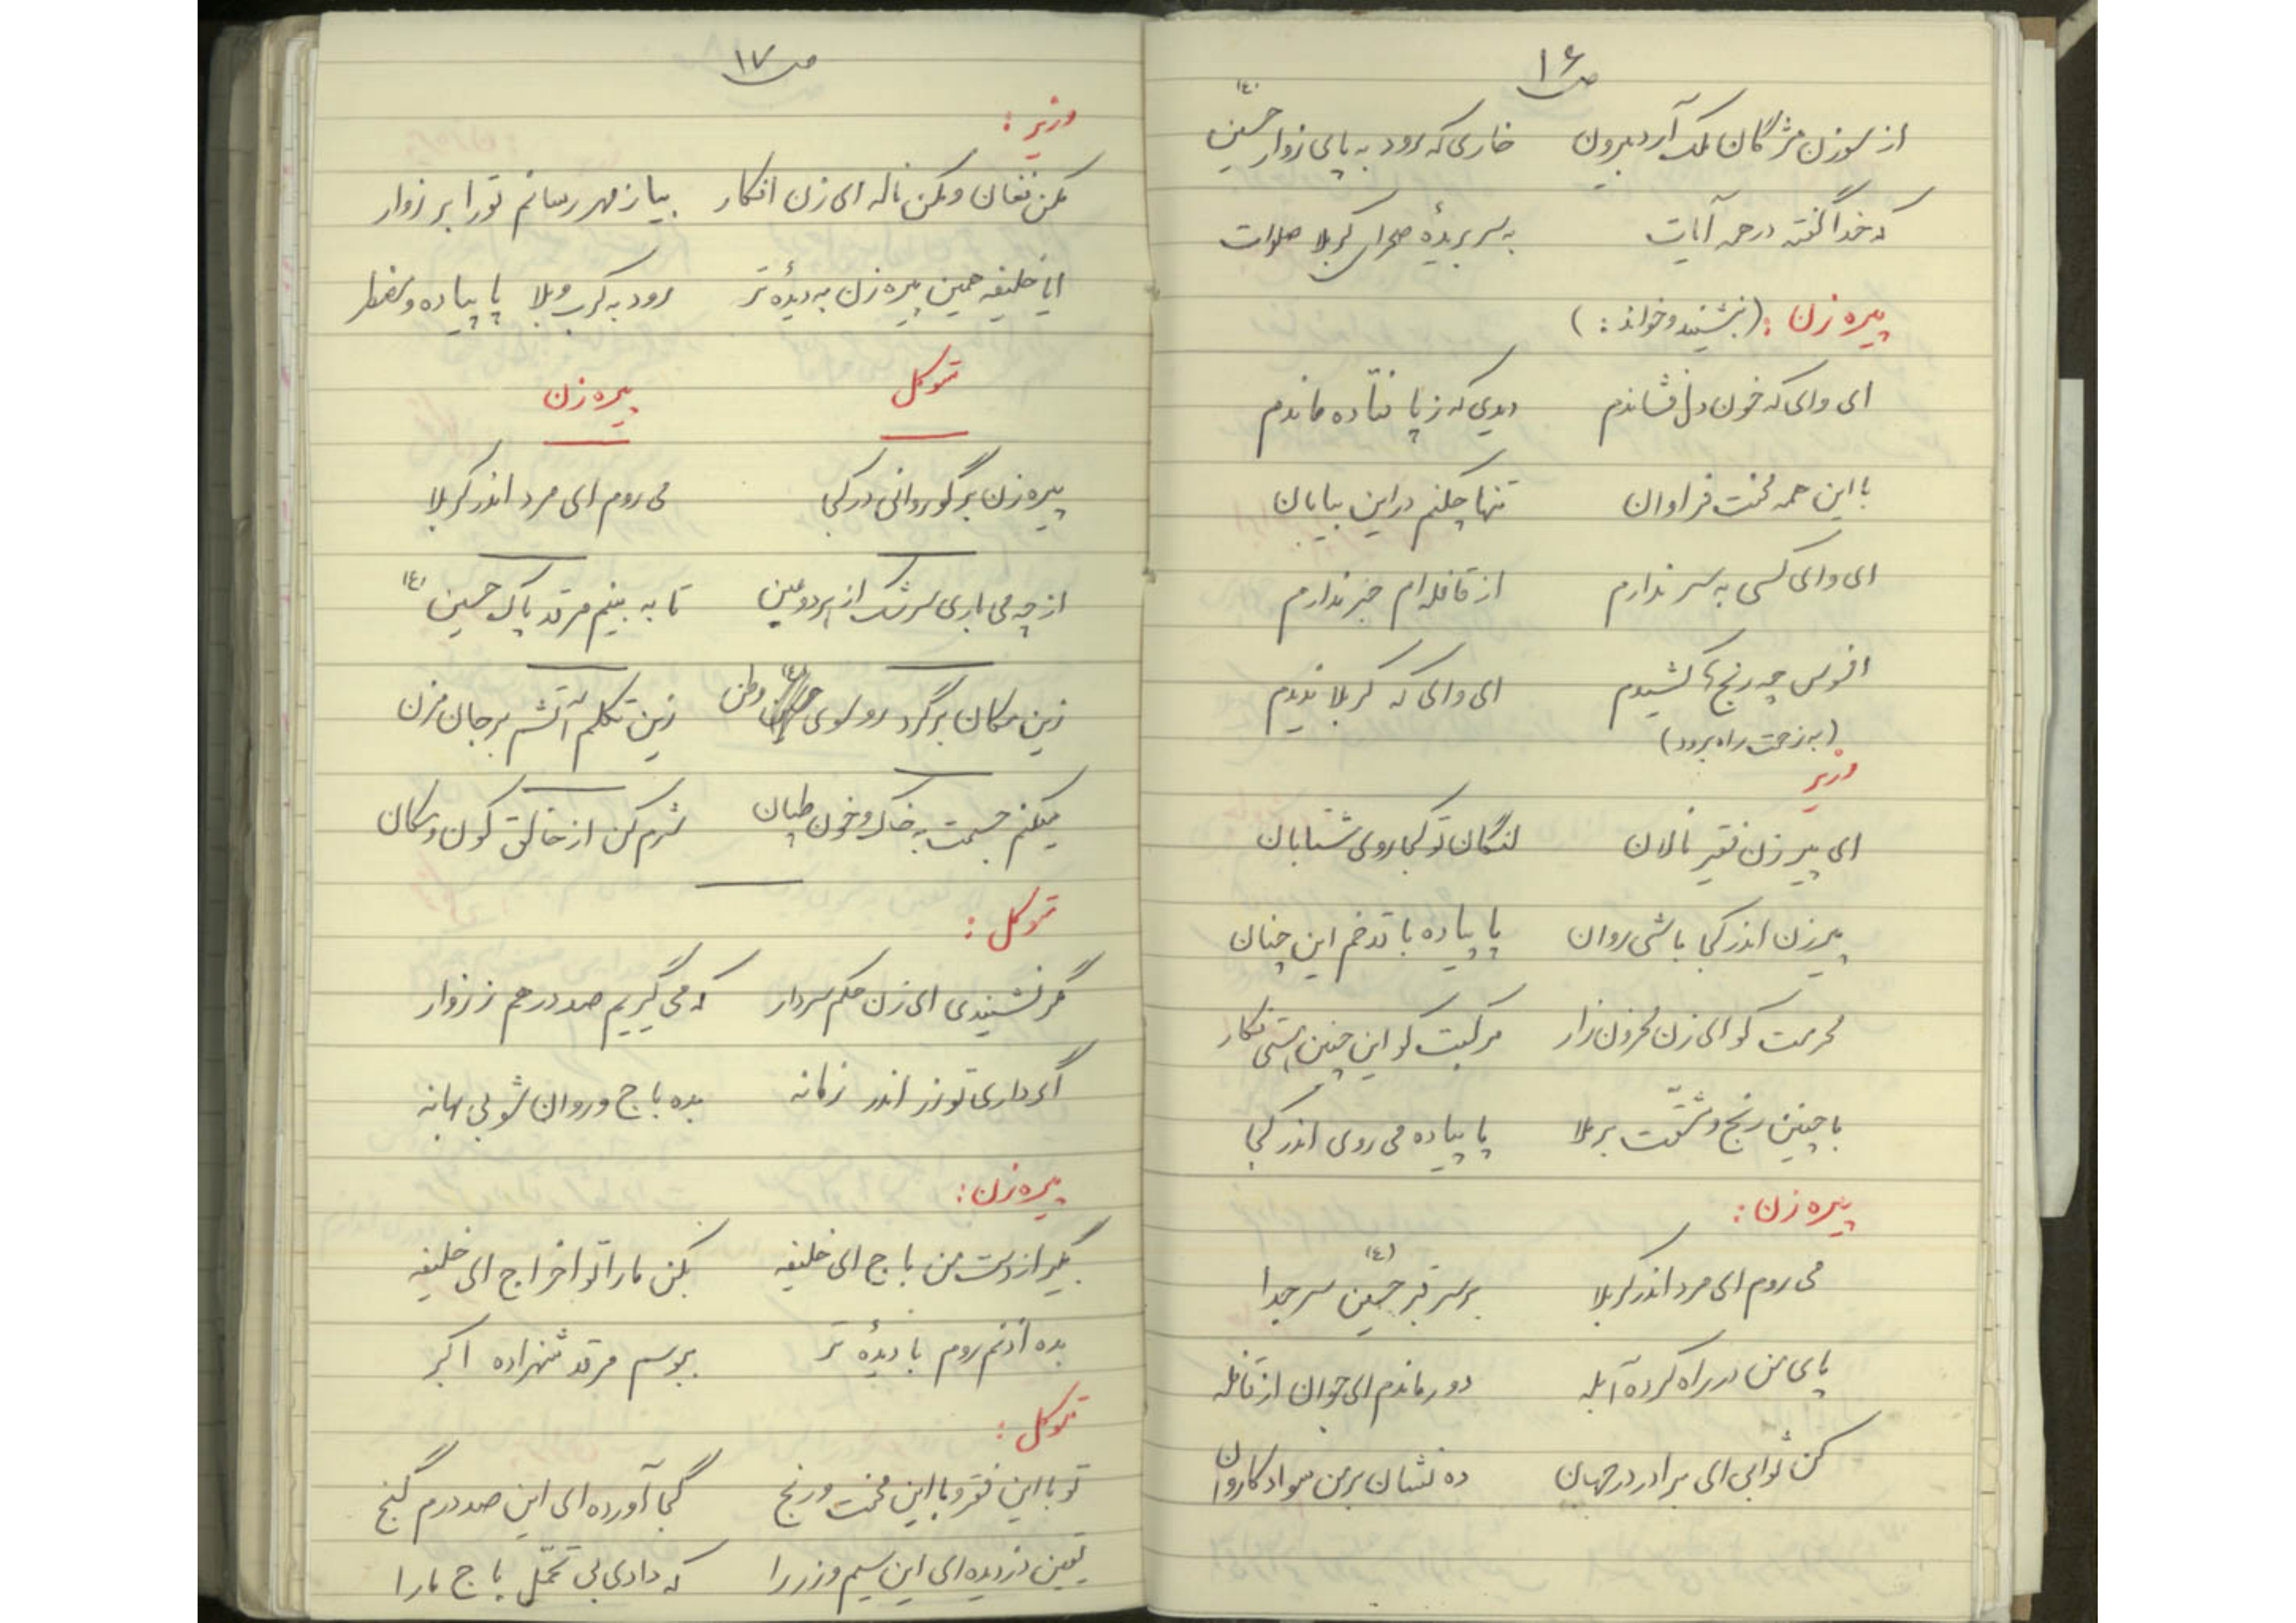 ص ۱۶
از سوزن مژگان ملک آرد بیرون    خاری که رود به پای زوار حسین (ع)
که خدا گفته در همه آیات    به سر بریدهٔ صحرای کربلا صلوات
پیره زن : (بنشیند و خواند : )
ای وای که خون دل فشاندم    دیدی که ز پا فتاده ماندم
با این همه محنت فراوان    تنها چکنم در این بیابان
ای وای کسی به سر ندارم    از قافله ام خبر ندارم
افسوس چه رنج ها کشیدم    ای وای که کربلا ندیدم
(به زحمت راه برود)
وزیر
ای پیر زن فقیر نالان    لنگان تو کجا روی شتابان
پیرزن اندر کجا باشی روان    پا پیاده با قد خم این چنان
محرمت کو ای زن محزون زار    مرکبت کو این چنین هستی فکار
با چنین رنج و مشقّت بر ملا    پا پیاده می روی اندر کجا
پیره زن :
می روم ای مرد اندر کربلا    بر سر قبر حسین (ع) سر جدا
پای من در راه کرده آبله    دور ماندم ای جوان از قافله
کن ثوابی ای برادر در جهان    ده نشان بر من سواد کاروان
ص ۱۷
وزیر :
مکن فغان و مکن ناله ای زن افکار    بیا ز مهر رسانم تو را بر زوار
ایا خلیفه همین پیره زن به دیدهٔ تر    رود به کرب و بلا پا پیاده و مضطر
متوکل    پیره زن
پیره زن برگو روانی در کجا    می روم ای مرد اندر کربلا
از چه می باری سرشک از هر دو عین    تا به بینم مرقد پاک حسین (ع)
زین مکان برگرد رو سوی وطن    زین تکلم آتشم بر جان مزن
میکنم جسمت به خاک و خون طپان    شرم کن از خالق کون و مکان
متوکل :
مگر نشنیدی ای زن حکم سردار    که می گیریم صد درهم ز زوار
اگر داری تو زر اندر زمانه    بده باج و روان شو بی بهانه
پیره زن :
بگیر از دست من باج ای خلیفه    مکن ما را تو اخراج ای خلیفه
بده اذنم روم با دیدهٔ تر    ببوسم مرقد شهزاده اکبر
متوکل :
تو با این فقر و با این محنت و رنج    کجا آورده ای این صد درم گنج
یقین دزدیده ای این سیم و زر را    که دادی بی تحمّل باج ما را